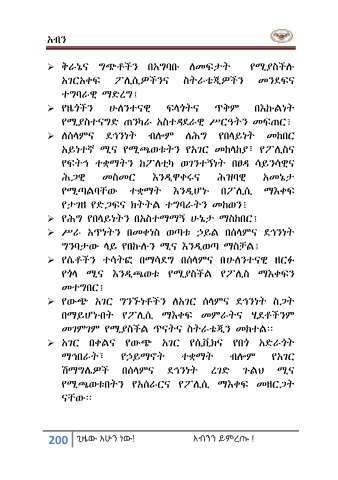 አብን
➢ ቅራኔና ግጭቶችን በአግባቡ ለመፍታት የሚያስችሉ
አገርአቀፍ ፖሊሲዎችንና ስትራቴጂዎችን መንደፍና
ተግባራዊ ማድረግ፤
➢ የዜጎችን ሁለንተናዊ ፍላጎትና ጥቅም በእኩልነት
የሚያስተናግድ ጠንካራ አስተዳደራዊ ሥርዓትን መፍጠር፤
➢ ለሰላምና ደኅንነት ብሎም ለሕግ የበላይነት መከበር
አይነተኛ ሚና የሚጫወቱትን የአገር መከላከያ፣ የፖሊስና
የፍትኅ ተቋማትን ከፖለቲካ ወገንተኝነት በፀዳ ሳይንሳዊና
ሕጋዊ መስመር እንዲዋቀሩና ሕዝባዊ አመኔታ
የሚጣልባቸው ተቋማት እንዲሆኑ በፖሊሲ ማእቀፍ
የታገዘ የድጋፍና ክትትል ተግባራትን መከወን፤
➢ የሕግ የበላይነትን በአስተማማኝ ሁኔታ ማስከበር፤
➢ ሥራ አጥነትን በመቀነስ ወጣቱ ኃይል በሰላምና ደኅንነት
ግንባታው ላይ የበኩሉን ሚና እንዲወጣ ማስቻል፤
➢ የሴቶችን ተሳትፎ በማሳደግ በሰላምና በሁለንተናዊ ዘርፉ
የጎላ ሚና እንዲጫወቱ የሚያስችል የፖሊሲ ማእቀፍን
መተግበር፤
➢ የውጭ አገር ግንኙነቶችን ለአገር ሰላምና ደኅንነት ስጋት
በማይሆኑበት የፖሊሲ ማእቀፍ መምራትና ሂደቶችንም
መገምገም የሚያስችል ጥናትና ስትራቴጂን መከተል።
➢ አገር በቀልና የውጭ አገር የሲቪክና የበጎ አድራጎት
ማኅበራት፣ የኃይማኖት ተቋማት ብሎም የአገር
ሽማግሌዎች በሰላምና ደኅንነት ረገድ ጉልህ ሚና
የሚጫወቱበትን የአሰራርና የፖሊሲ ማእቀፍ መዘርጋት
ናቸው።
200 ጊዜው አሁን ነው! አብንን ይምረጡ !